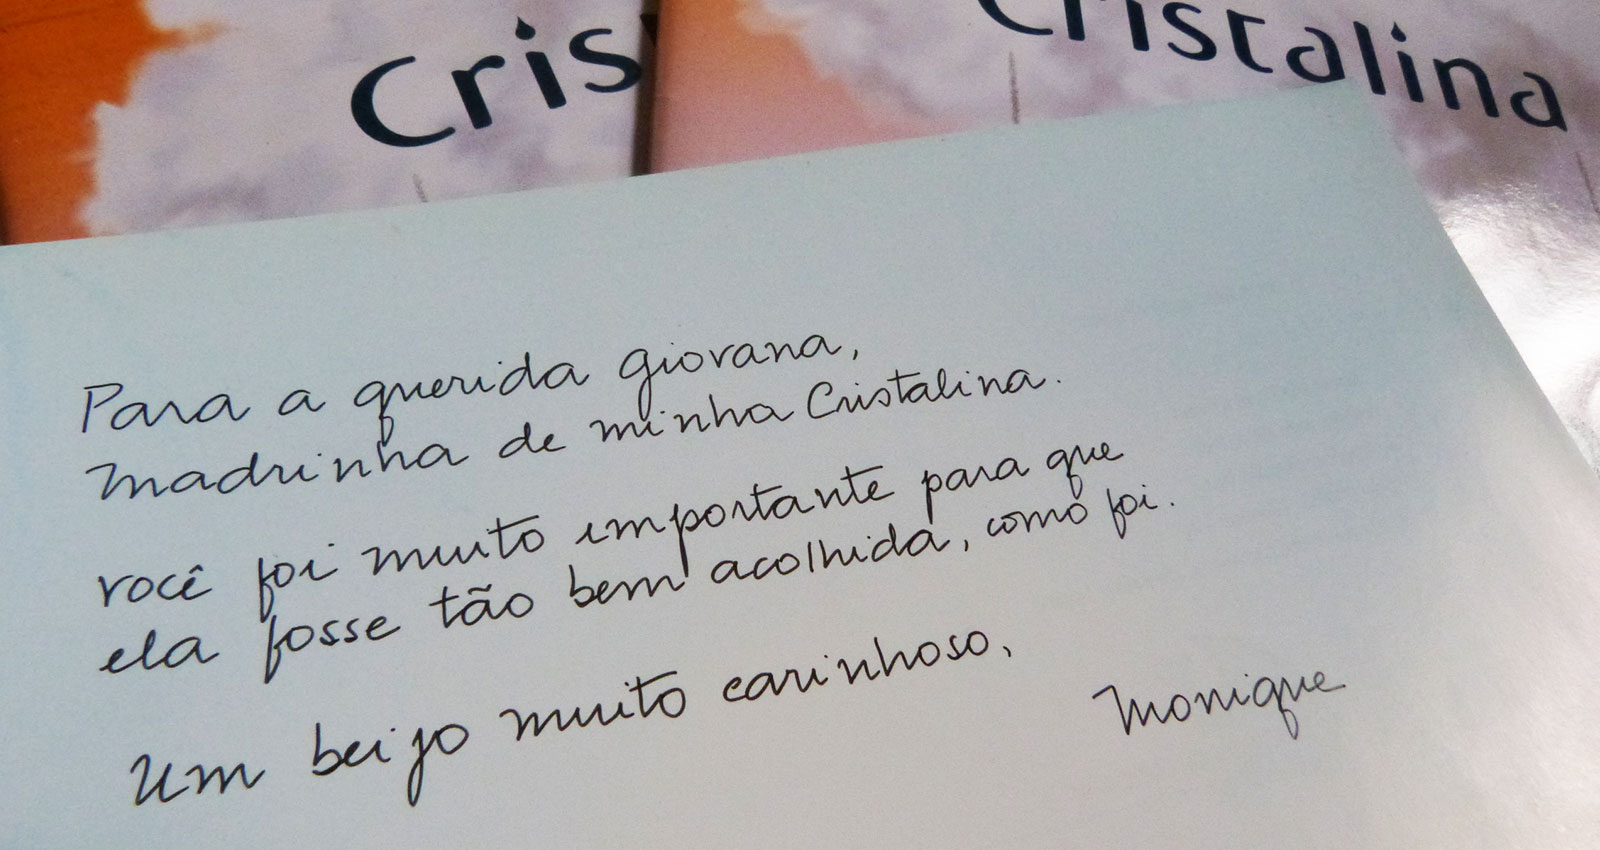 Cris
Cristalina
Para a querida Giovana,
madrinha de minha Cristalina.
Você foi muito importante para que
ela fosse tão bem acolhida, como foi.
Um beijo muito carinhoso,
Monique